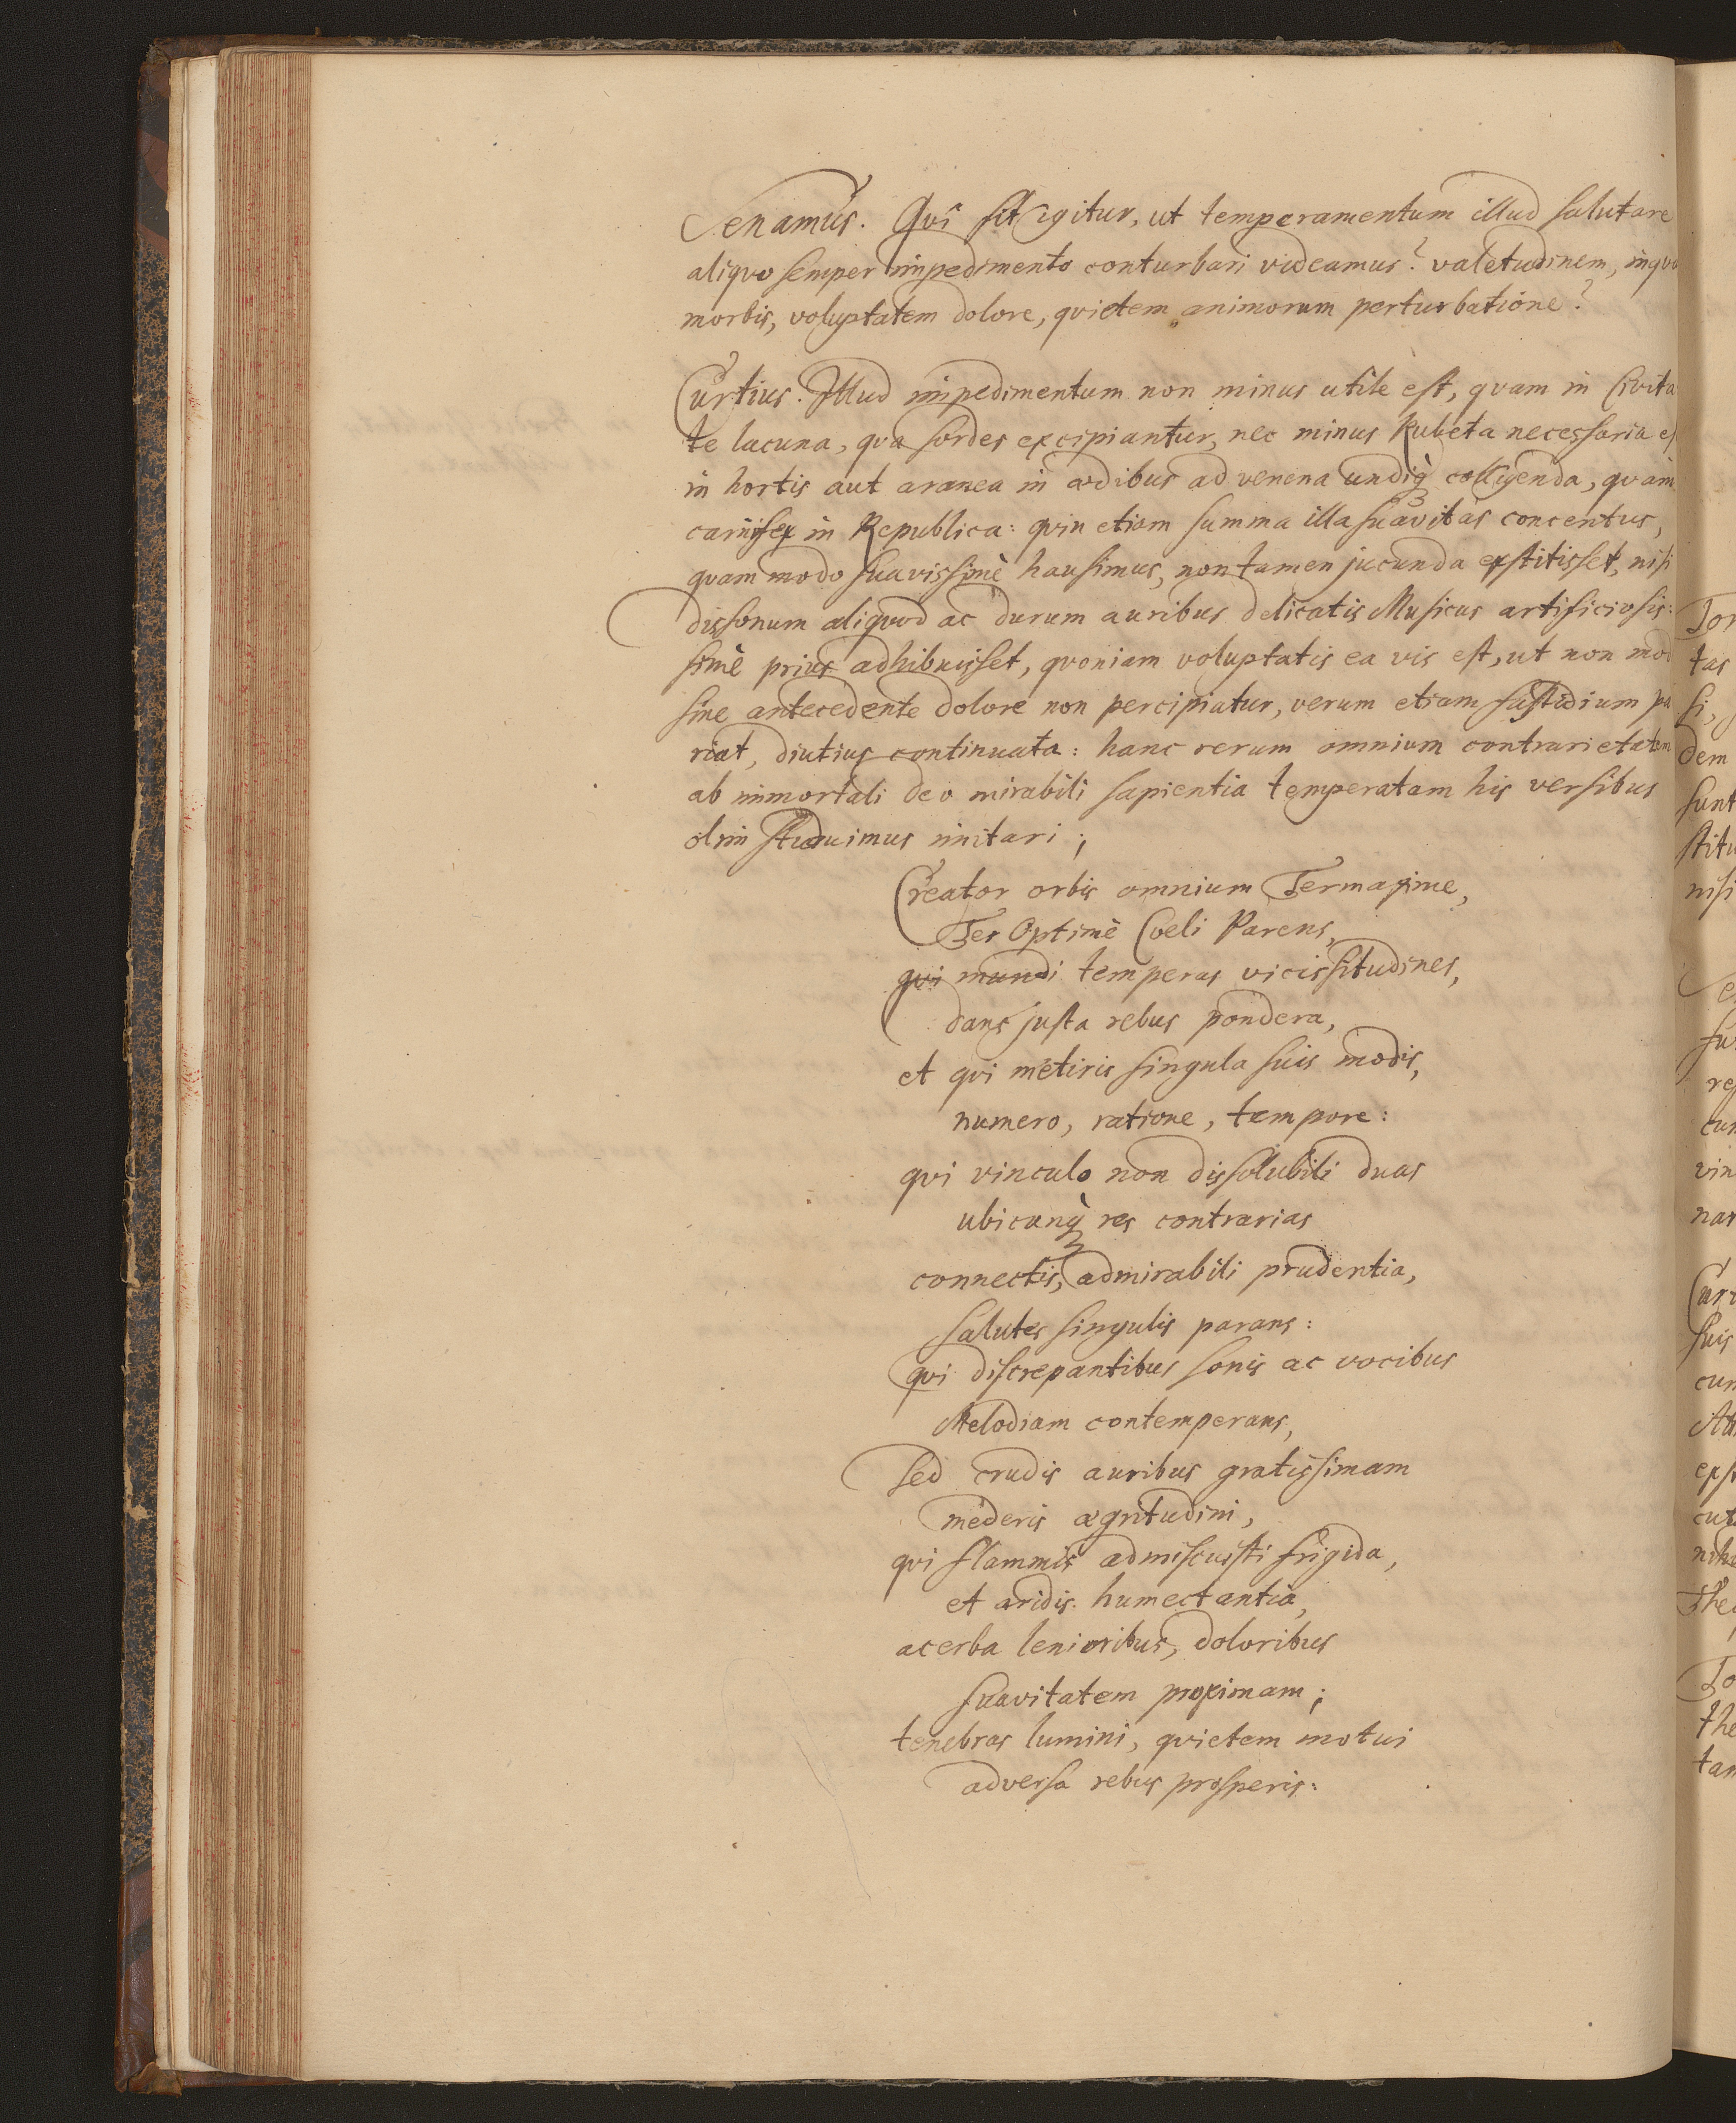 Senamus. Qvi fit igitur, ut temperamentum illud salutare
aliqvo semper impedimento conturbari videamus? valetudinem, inqv
morbis, voluptatem dolore, qvietem animorum perturbatione?
Curtius. Illud impedimentum non minus utile est, qvam in Civita
te lacuna, qva sordes excipiantur, nec minus Rubeta necessaria es
in hortis aut aranea in ædibus ad venena undiq̀ꝫ colligenda, qvàm
carnifex in Republica: qvin etiam summa illa suavitas concentus,
qvam modo suavissimè hausimus, non tamen jucunda exstitisset, nisi
dissonum aliqvod ac durum auribus delicatis Musicus artificiosis:
simè prius adhibuisset, qvoniam voluptatis ea vis est, ut non mod
sine antecedente dolore non percipiatur, verum etiam fastidium pa
riat, diutius continuata: hanc rerum omnium contrarietatem
ab immortali deo mirabili sapientia temperatam his versibus
olim studuimus imitari;
Creator orbis omnium Termaxime,
Ter Optimè Coeli Parens,
qvi mundi temperas vicissitudines,
dans justa rebus pondera,
et qvi metiris singula suis modis,
numero, ratione, tempore:
qvi vinculo non dissolubili duas
ubicunq̀ꝫ res contrarias
connectis, admirabili prudentia,
salutes singulis parans:
qvi discrepantibus sonis ac vocibus
Melodiam contemperans,
sed crudis auribus gratissimam
mederis ægritudini,
qvi flammis admiscuisti frigida,
et aridis humectantia,
acerba lenioribus, doloribus
suavitatem proximam;
tenebras lumini, qvietem motui
adversa rebus prosperis: